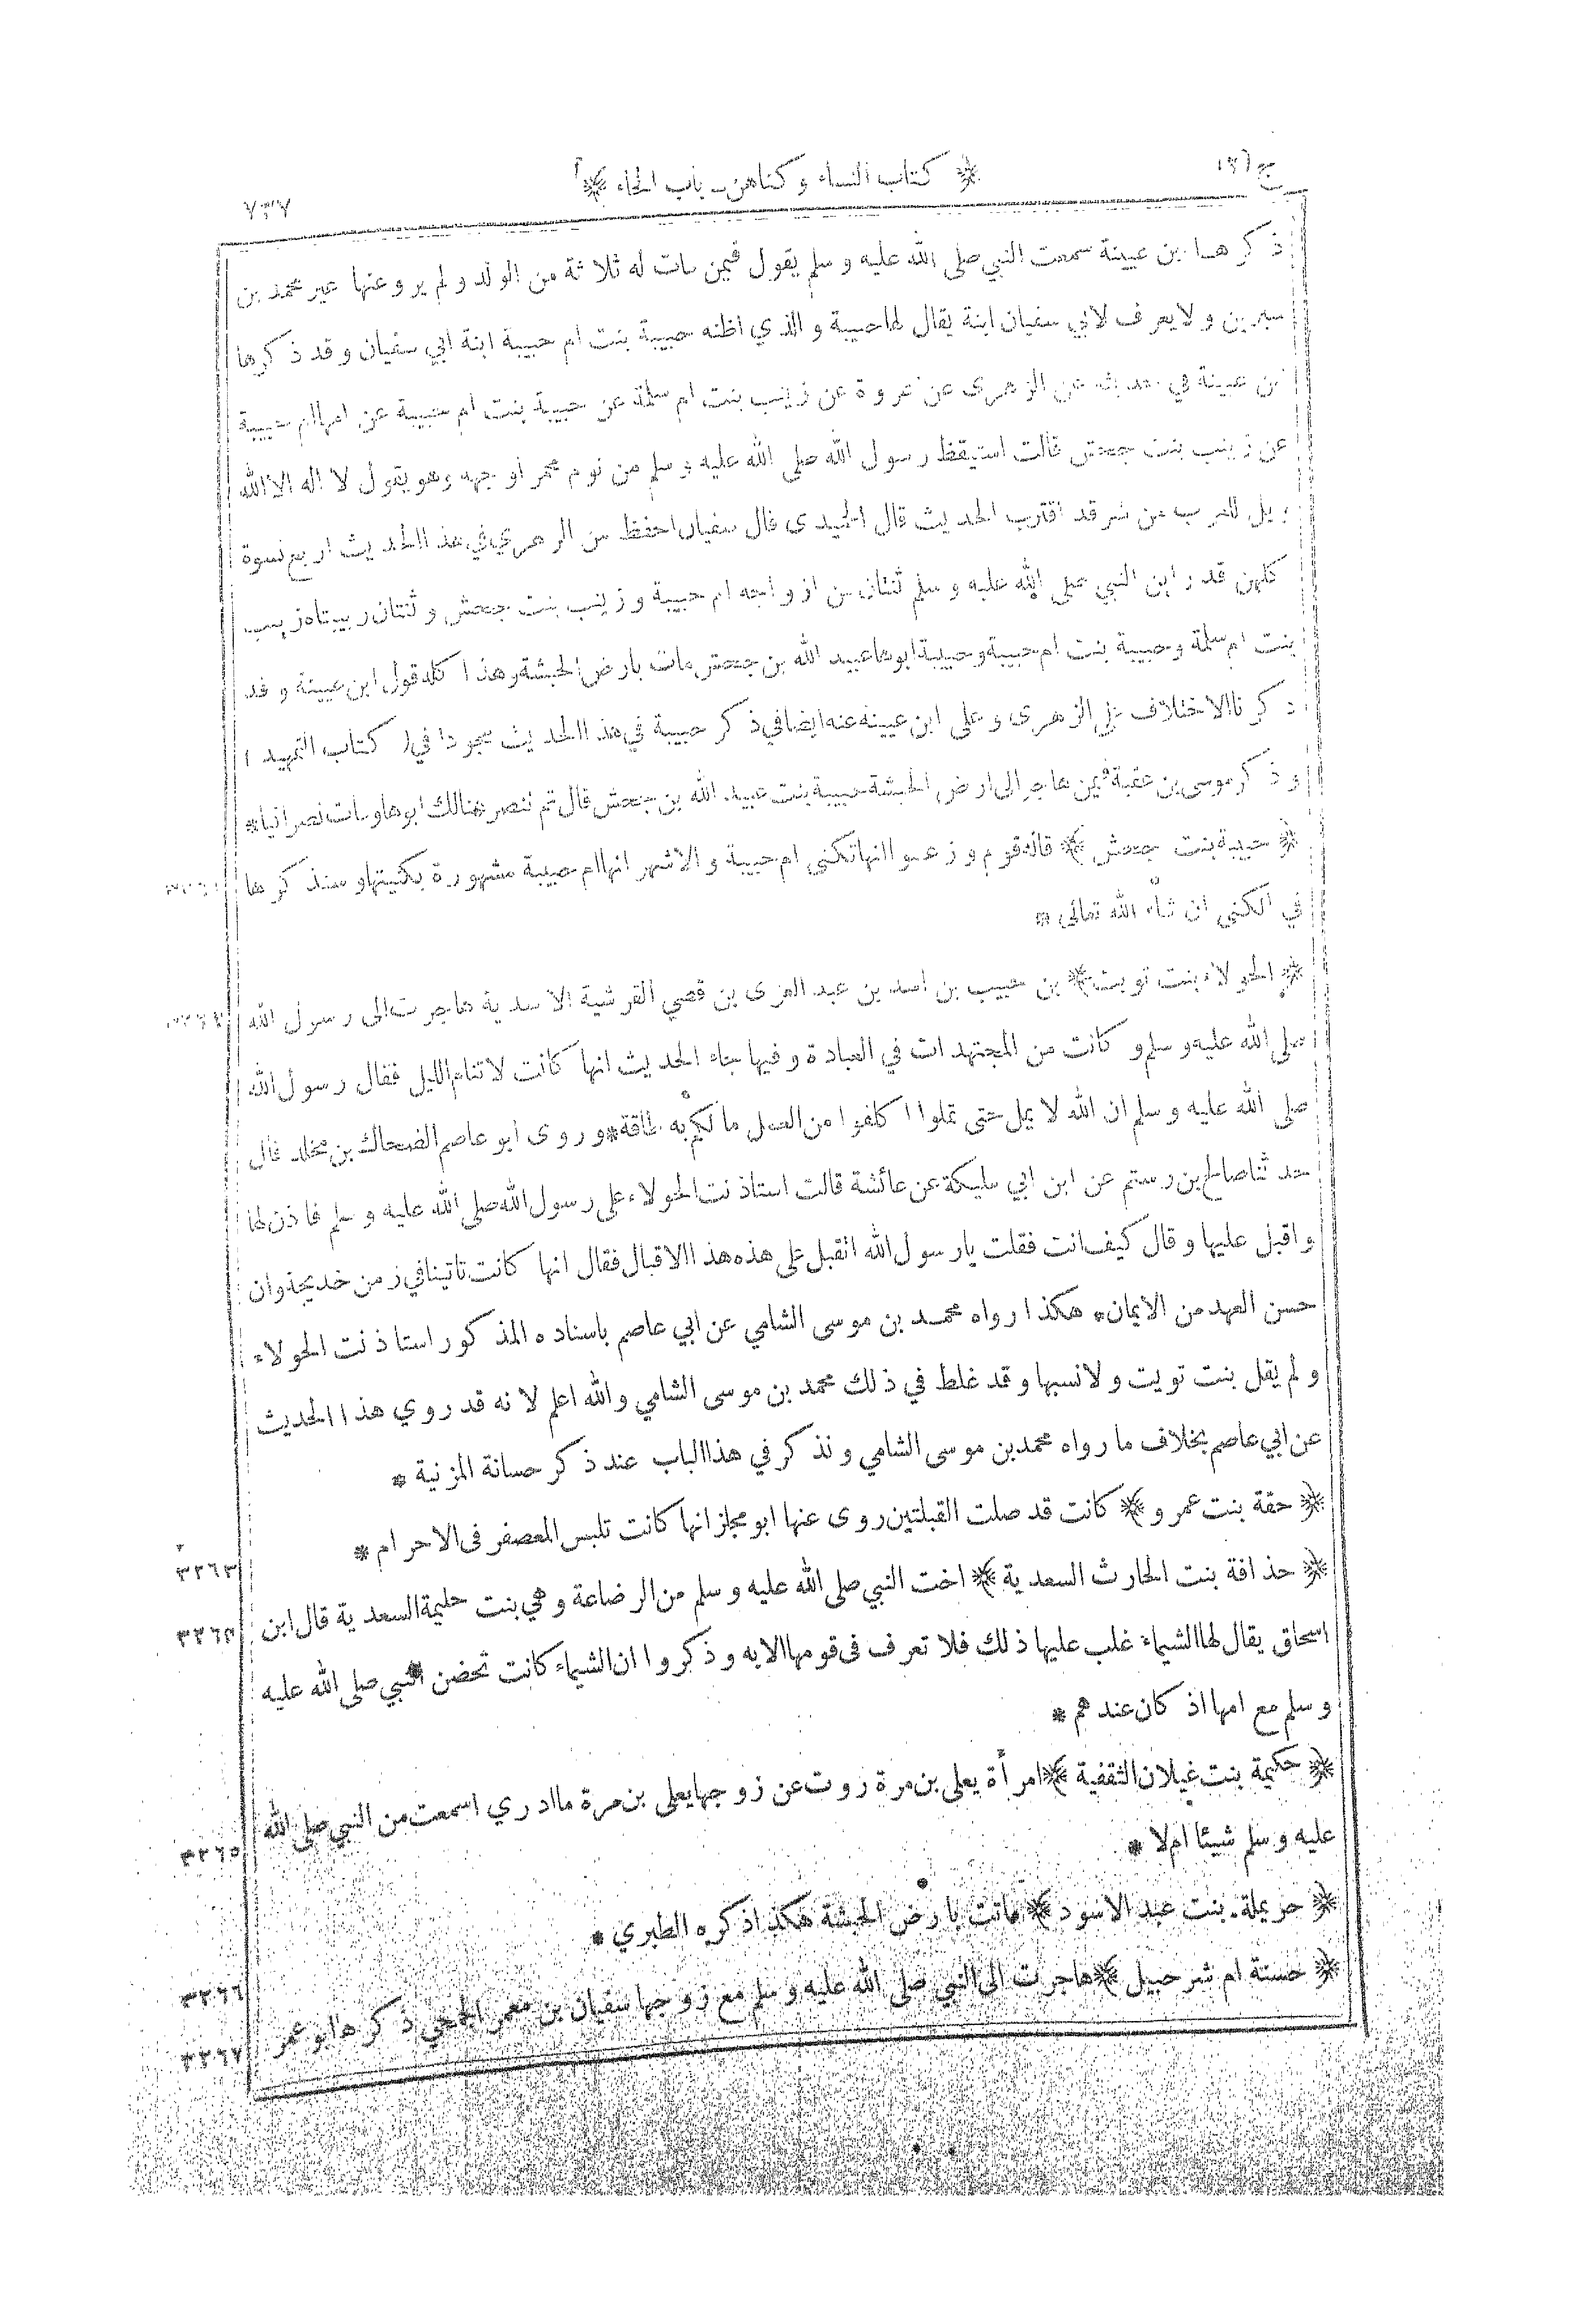 ج (٢)
﴿ كتاب النساء وكناهن ـ باب الحاء ﴾
٧٣٧
ذكرها ابن عيينة سمعت النبي صلى الله عليه وسلم يقول فيمن مات له ثلاثة من الولد ولم يرو عنها غير محمد بن
سيرين ولا يعرف لابي سفيان ابنة يقال لها حبيبة والذي اظنه حبيبة بنت ام حبيبة ابنة ابي سفيان وقد ذكرها
ابن عيينة في حديثه عن الزهرى عن عروة عن زينب بنت ام سلمة عن حبيبة بنت ام حبيبة عن امها ام حبيبة
عن زينب بنت جحش قالت استيقظ رسول الله صلى الله عليه وسلم من نوم محمرا وجهه وهو يقول لا اله الا الله
ويل للعرب من شر قد اقترب الحديث قال الحميدى قال سفيان احفظ من الزهري في هذا الحديث اربع نسوة
كلهن قد راين النبي صلى الله عليه وسلم ثنتان من ازواجه ام حبيبة وزينب بنت جحش وثنتان ربيبتاه زينب
بنت ام سلمة وحبيبة بنت ام حبيبة وحبيبة ابوها عبيد الله بن جحش مات بارض الحبشة وهذا كله قول ابن عيينة وقد
ذكرنا الاختلاف على الزهرى وعلى ابن عيينة عنه ايضا في ذكر حبيبة في هذا الحديث مجودا في (كتاب التمهيد)
وذكر موسى بن عقبة فيمن هاجر الى ارض الحبشة حبيبة بنت عبيد الله بن جحش قال تم تنصر هنالك ابوها ومات نصرانيا*
﴿ حبيبة بنت جحش ﴾ قاله قوم وزعموا انها تكنى ام حبيبة والاشهر انها ام حبيبة مشهورة بكنيتها وسنذكرها
في الكنى ان شاء الله تعالى *
﴿ الحولاء بنت تويت ﴾ بن حبيب بن اسد بن عبد العزى بن قصي القرشية الاسدية هاجرت الى رسول الله
صلى الله عليه وسلم وكانت من المجتهدات في العبادة وفيها جاء الحديث انها كانت لا تنام الليل فقال رسول الله
صلى الله عليه وسلم ان الله لا يمل حتى تملوا اكلفوا من العمل ما لكم به طاقة* وروى ابو عاصم الضحاك بن مخلد قال
حدثنا صالح بن رستم عن ابن ابي مليكة عن عائشة قالت استاذنت الحولاء على رسول الله صلى الله عليه وسلم فاذن لها
واقبل عليها وقال كيف انت فقلت يارسول الله اتقبل على هذه هذا الاقبال فقال انها كانت تاتينا في زمن خديجة وان
حسن العهد من الايمان* هكذا رواه محمد بن موسى الشامي عن ابي عاصم باسناده المذكور استاذنت الحولاء
ولم يقل بنت تويت ولا نسبها وقد غلط في ذلك محمد بن موسى الشامي والله اعلم لانه قد روي هذا الحديث
عن ابي عاصم بخلاف ما رواه محمد بن موسى الشامي ونذكر في هذا الباب عند ذكر حسانة المزنية *
﴿ حقة بنت عمرو ﴾ كانت قد صلت القبلتين روى عنها ابو مجلز انها كانت تلبس المعصفر فى الاحرام *
٣٢٦٣
﴿ حذافة بنت الحارث السعدية ﴾ اخت النبي صلى الله عليه وسلم من الرضاعة وهي بنت حليمة السعدية قال ابن
٣٢٦٤
اسحاق يقال لها الشيماء غلب عليها ذلك فلا تعرف فى قومها الا به وذكروا ان الشيماء كانت تحضن النبي صلى الله عليه
وسلم مع امها اذ كان عندهم *
﴿ حكيمة بنت غيلان الثقفية ﴾ امرأة يعلى بن مرة روت عن زوجها يعلى بن مرة ما ادري اسمعت من النبي صلى الله
٣٢٦٥
عليه وسلم شيئا ام لا *
﴿ حريملة بنت عبد الاسود ﴾ ماتت بارض الحبشة هكذا ذكره الطبري *
٣٢٦٦
﴿ حسنة ام شرحبيل ﴾ هاجرت الى النبي صلى الله عليه وسلم مع زوجها سفيان بن معمر الجمحي ذكرها ابو عمر
٣٢٦٧